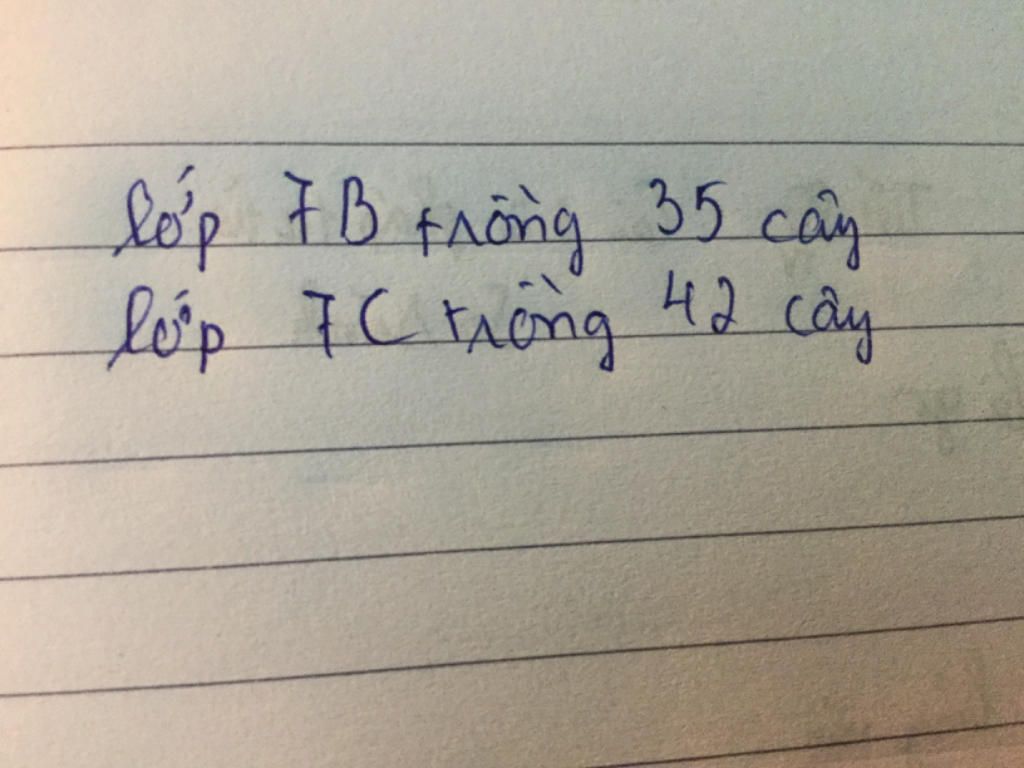 lớp 7B trồng 35 cây
lớp 7C trồng 42 cây